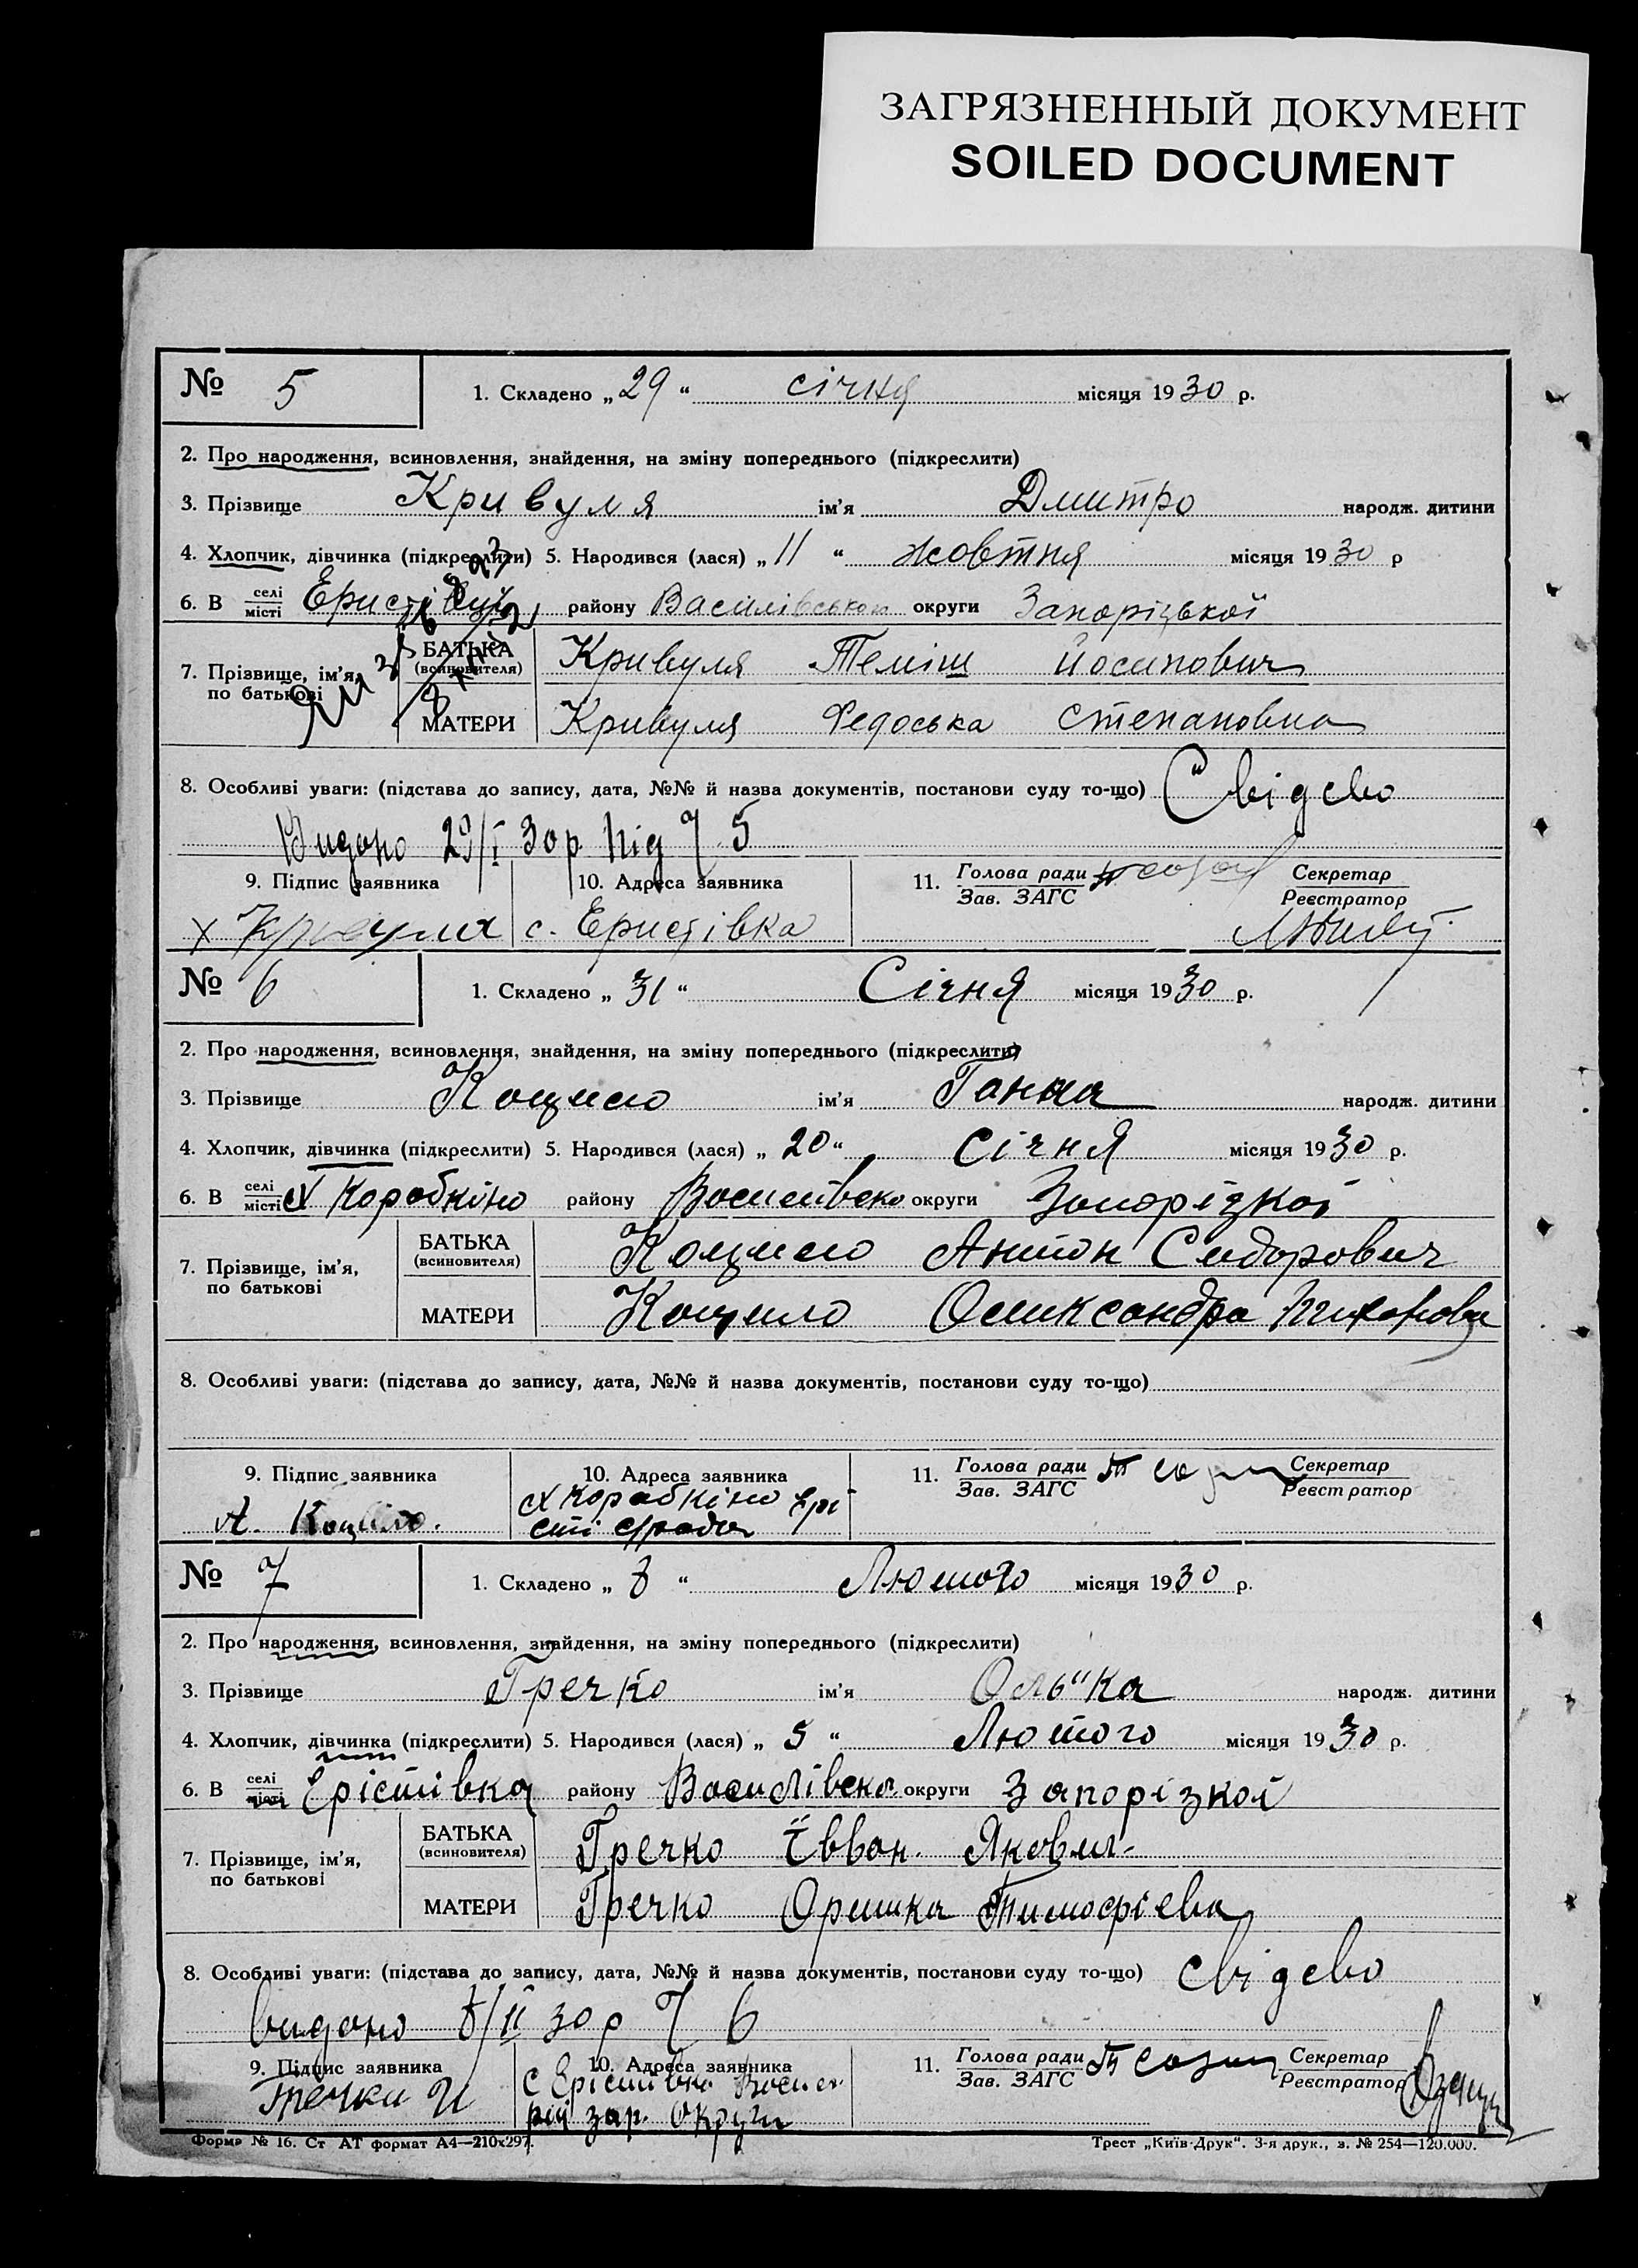 ЗАГРЯЗНЕННЫЙ ДОКУМЕНТ
SOILED DOCUMENT
№ 5 1. Складено „ 29 “ січня місяця 1930 р.
2. Про народження, всиновлення, знайдення, на зміну попереднього (підкреслити)
3. Прізвище Кривуля ім'я Дмитро народж. дитини
4. Хлопчик, дівчинка (підкреслити) 5. Народився (лася) „ 11 “ жовтня місяця 1930 р
6. В селі місті району Василівськои округи Запоріцької
7. Прізвище, ім'я, по батькові
БАТЬКА (всиновителя) Кривуля Теміш Йосипович
МАТЕРИ Кривуля Федоська Степановна
8. Особливі уваги: (підстава до запису, дата, №№ й назва документів, постанови суду то-що) Свідсво
Видано 29/I 30р під № 5
9. Підпис заявника 10. Адреса заявника 11. Голова ради Зав. ЗАГС Секретар Реєстратор
х Кривуля с. Еристівка
№ 6 1. Складено „ 31 “ Січня місяця 1930 р.
2. Про народження, всиновлення, знайдення, на зміну попереднього (підкреслити)
3. Прізвище Коцило ім'я Ганна народж. дитини
4. Хлопчик, дівчинка (підкреслити) 5. Народився (лася) „ 20 “ Січня місяця 1930 р.
6. В селі місті х Коробкіно району Василівско округи Запорізкої
7. Прізвище, ім'я, по батькові
БАТЬКА (всиновителя) Коцило Антон Сидорович
МАТЕРИ Коцило Оликсандра Тихонова
8. Особливі уваги: (підстава до запису, дата, №№ й назва документів, постанови суду то-що)
9. Підпис заявника 10. Адреса заявника 11. Голова ради Зав. ЗАГС Секретар Реєстратор
А. Коцило. х Коробкіно Ері
сті с/рада
№ 7 1. Складено „ 8 “ Лютого місяця 1930 р.
2. Про народження, всиновлення, знайдення, на зміну попереднього (підкреслити)
3. Прізвище Гречко ім'я Оль"ка народж. дитини
4. Хлопчик, дівчинка (підкреслити) 5. Народився (лася) „ 5 “ Лютого місяця 1930 р.
6. В селі місті Ерістівка району Василівска округи Запорізкої
7. Прізвище, ім'я, по батькові
БАТЬКА (всиновителя) Гречко Їван. Яковл-
МАТЕРИ Гречко Оришка Тимофіева
8. Особливі уваги: (підстава до запису, дата, №№ й назва документів, постанови суду то-що) свідсво
видано 8/II 30 р № 6
9. Підпис заявника 10. Адреса заявника 11. Голова ради Зав. ЗАГС Секретар Реєстратор
Гречки И с Ерістівка Васил
рай зап. округи
Форма № 16. Ст АТ формат А4—210х297. Трест „Київ-Друк“. 3-я друк., з. № 254—120.000.